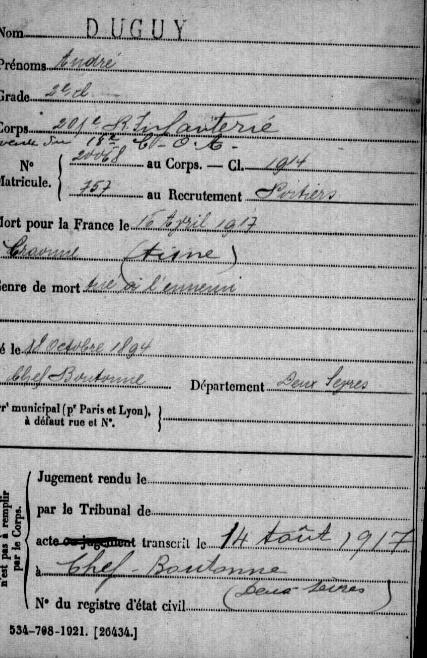 Nom DUGUY
Prénoms André
Grade 2e cl.
Corps 201e R. Infanterie
venu du 18e C. O. A.
N° 20068 au Corps. — Cl. 1914
Matricule. 757 au Recrutement Poitiers
Mort pour la France le 16 Avril 1917
Craonne (Aisne)
Genre de mort tué à l'ennemi
Né le 18 Octobre 1894
Chef Boutonne Département Deux Sevres
Arrt municipal (pr Paris et Lyon),
à défaut rue et N°.
n'est pas à remplir
par le Corps.
Jugement rendu le
par le Tribunal de
acte ou jugement transcrit le 14 Août 1917
à Chef-Boutonne
(Deux Sèvres)
N° du registre d'état civil
534-708-1921. [26434.]